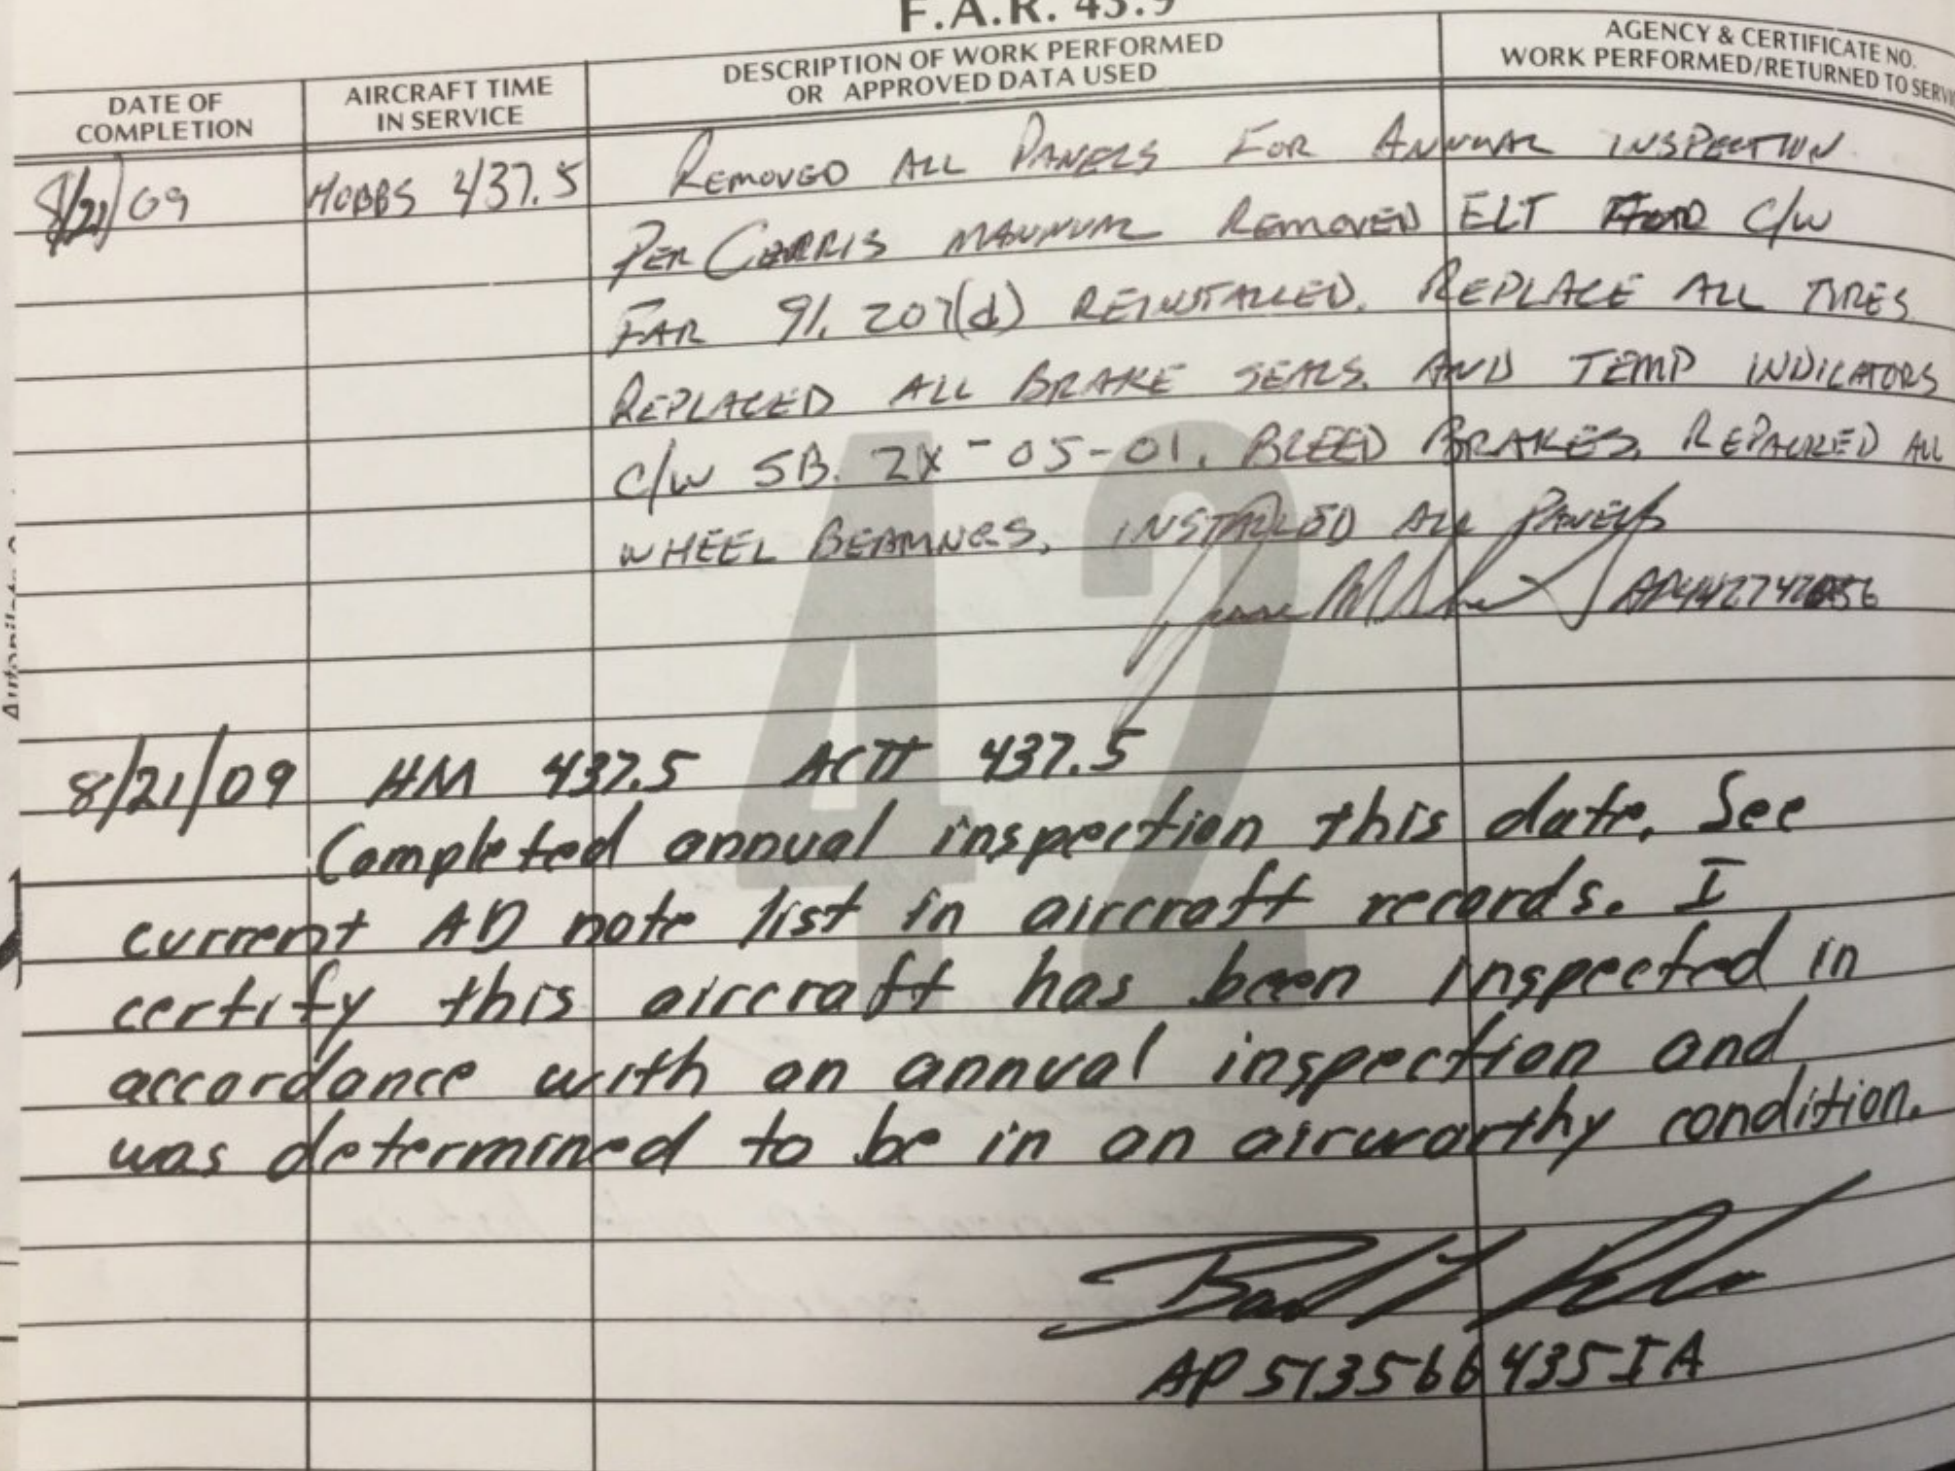 F.A.R. 43.9
DATE OF COMPLETION
AIRCRAFT TIME IN SERVICE
DESCRIPTION OF WORK PERFORMED OR APPROVED DATA USED
AGENCY & CERTIFICATE NO. WORK PERFORMED/RETURNED TO SERVI
8/21/09 HOBBS 437.5 REMOVED ALL PANELS FOR ANNUAL INSPECTION
PER CERRIS MANNUAL REMOVED ELT C/W
FAR 91.207(d) REINSTALLED. REPLACE ALL TIRES
REPLACED ALL BRAKE SEALS. AND TEMP INDICATORS
C/W SB. 2X-05-01. BLEED BRAKES, REPAIRED ALL
WHEEL BEARINGS, INSTALLED ALL PANELS
42
8/21/09 HM 437.5 ACTT 437.5
Completed annual inspection this date. See
current AD note list in aircraft records. I
certify this aircraft has been inspected in
accordance with an annual inspection and
was determined to be in an airworthy condition.
AP 513566435IA